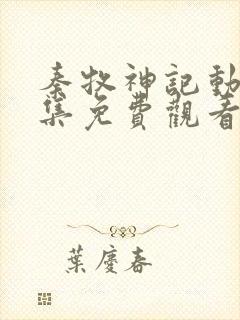 秦牧神記動
集免費觀看
葉慶春